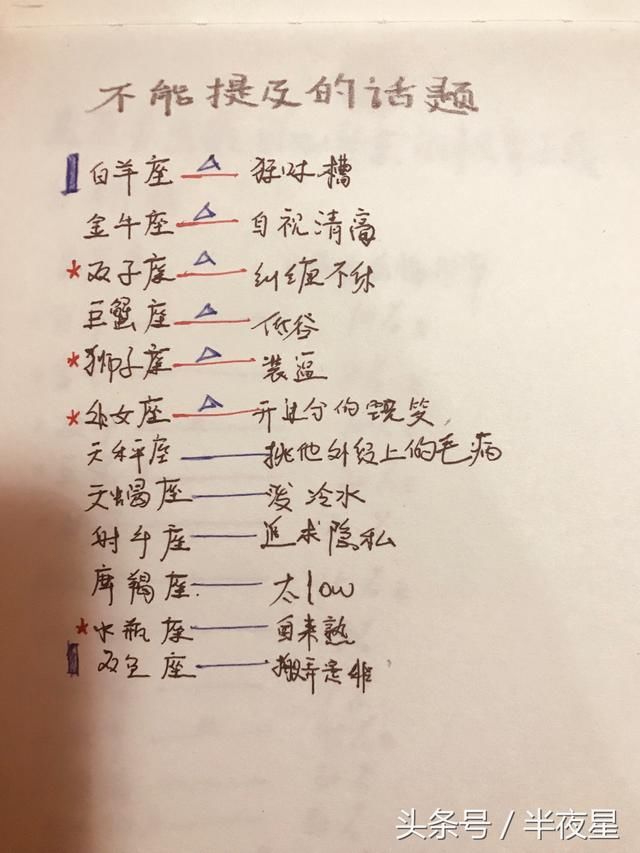 不能提及的话题
白羊座 狂吐槽
金牛座 自视清高
双子座 纠缠不休
巨蟹座 低谷
狮子座 装逼
处女座 开过分的玩笑
天秤座 挑他外径上的毛病
天蝎座 泼冷水
射手座 追求隐私
摩羯座 太low
水瓶座 自来熟
双鱼座 搬弄是非
头条号 / 半夜星